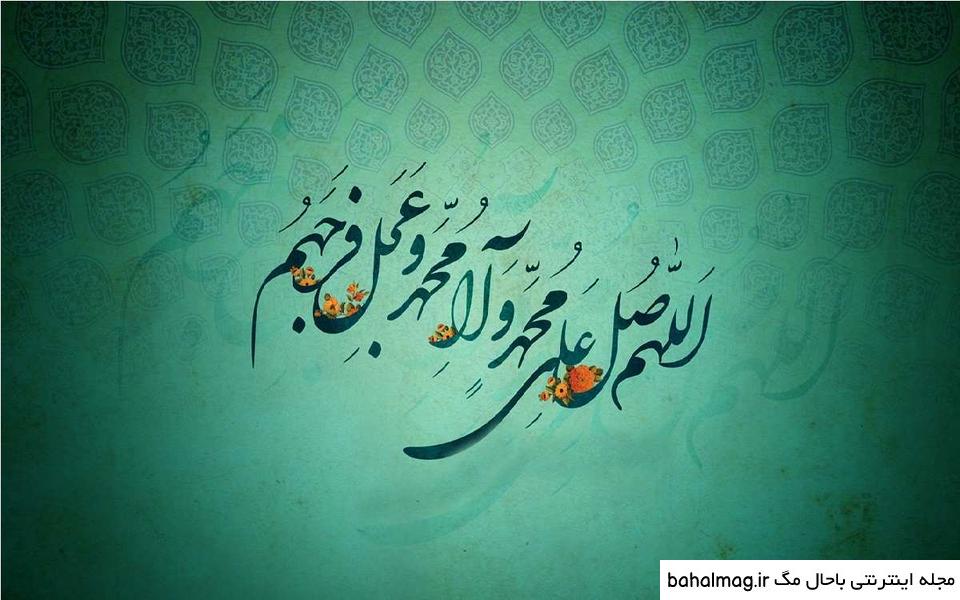 اللّهُمَ صَلِ عَلی مُحمّدٍ وَآلِ مُحمّدٍ وَعَجِل فَرَجَهُم
مجله اینترنتی باحال مگ bahalmag.ir